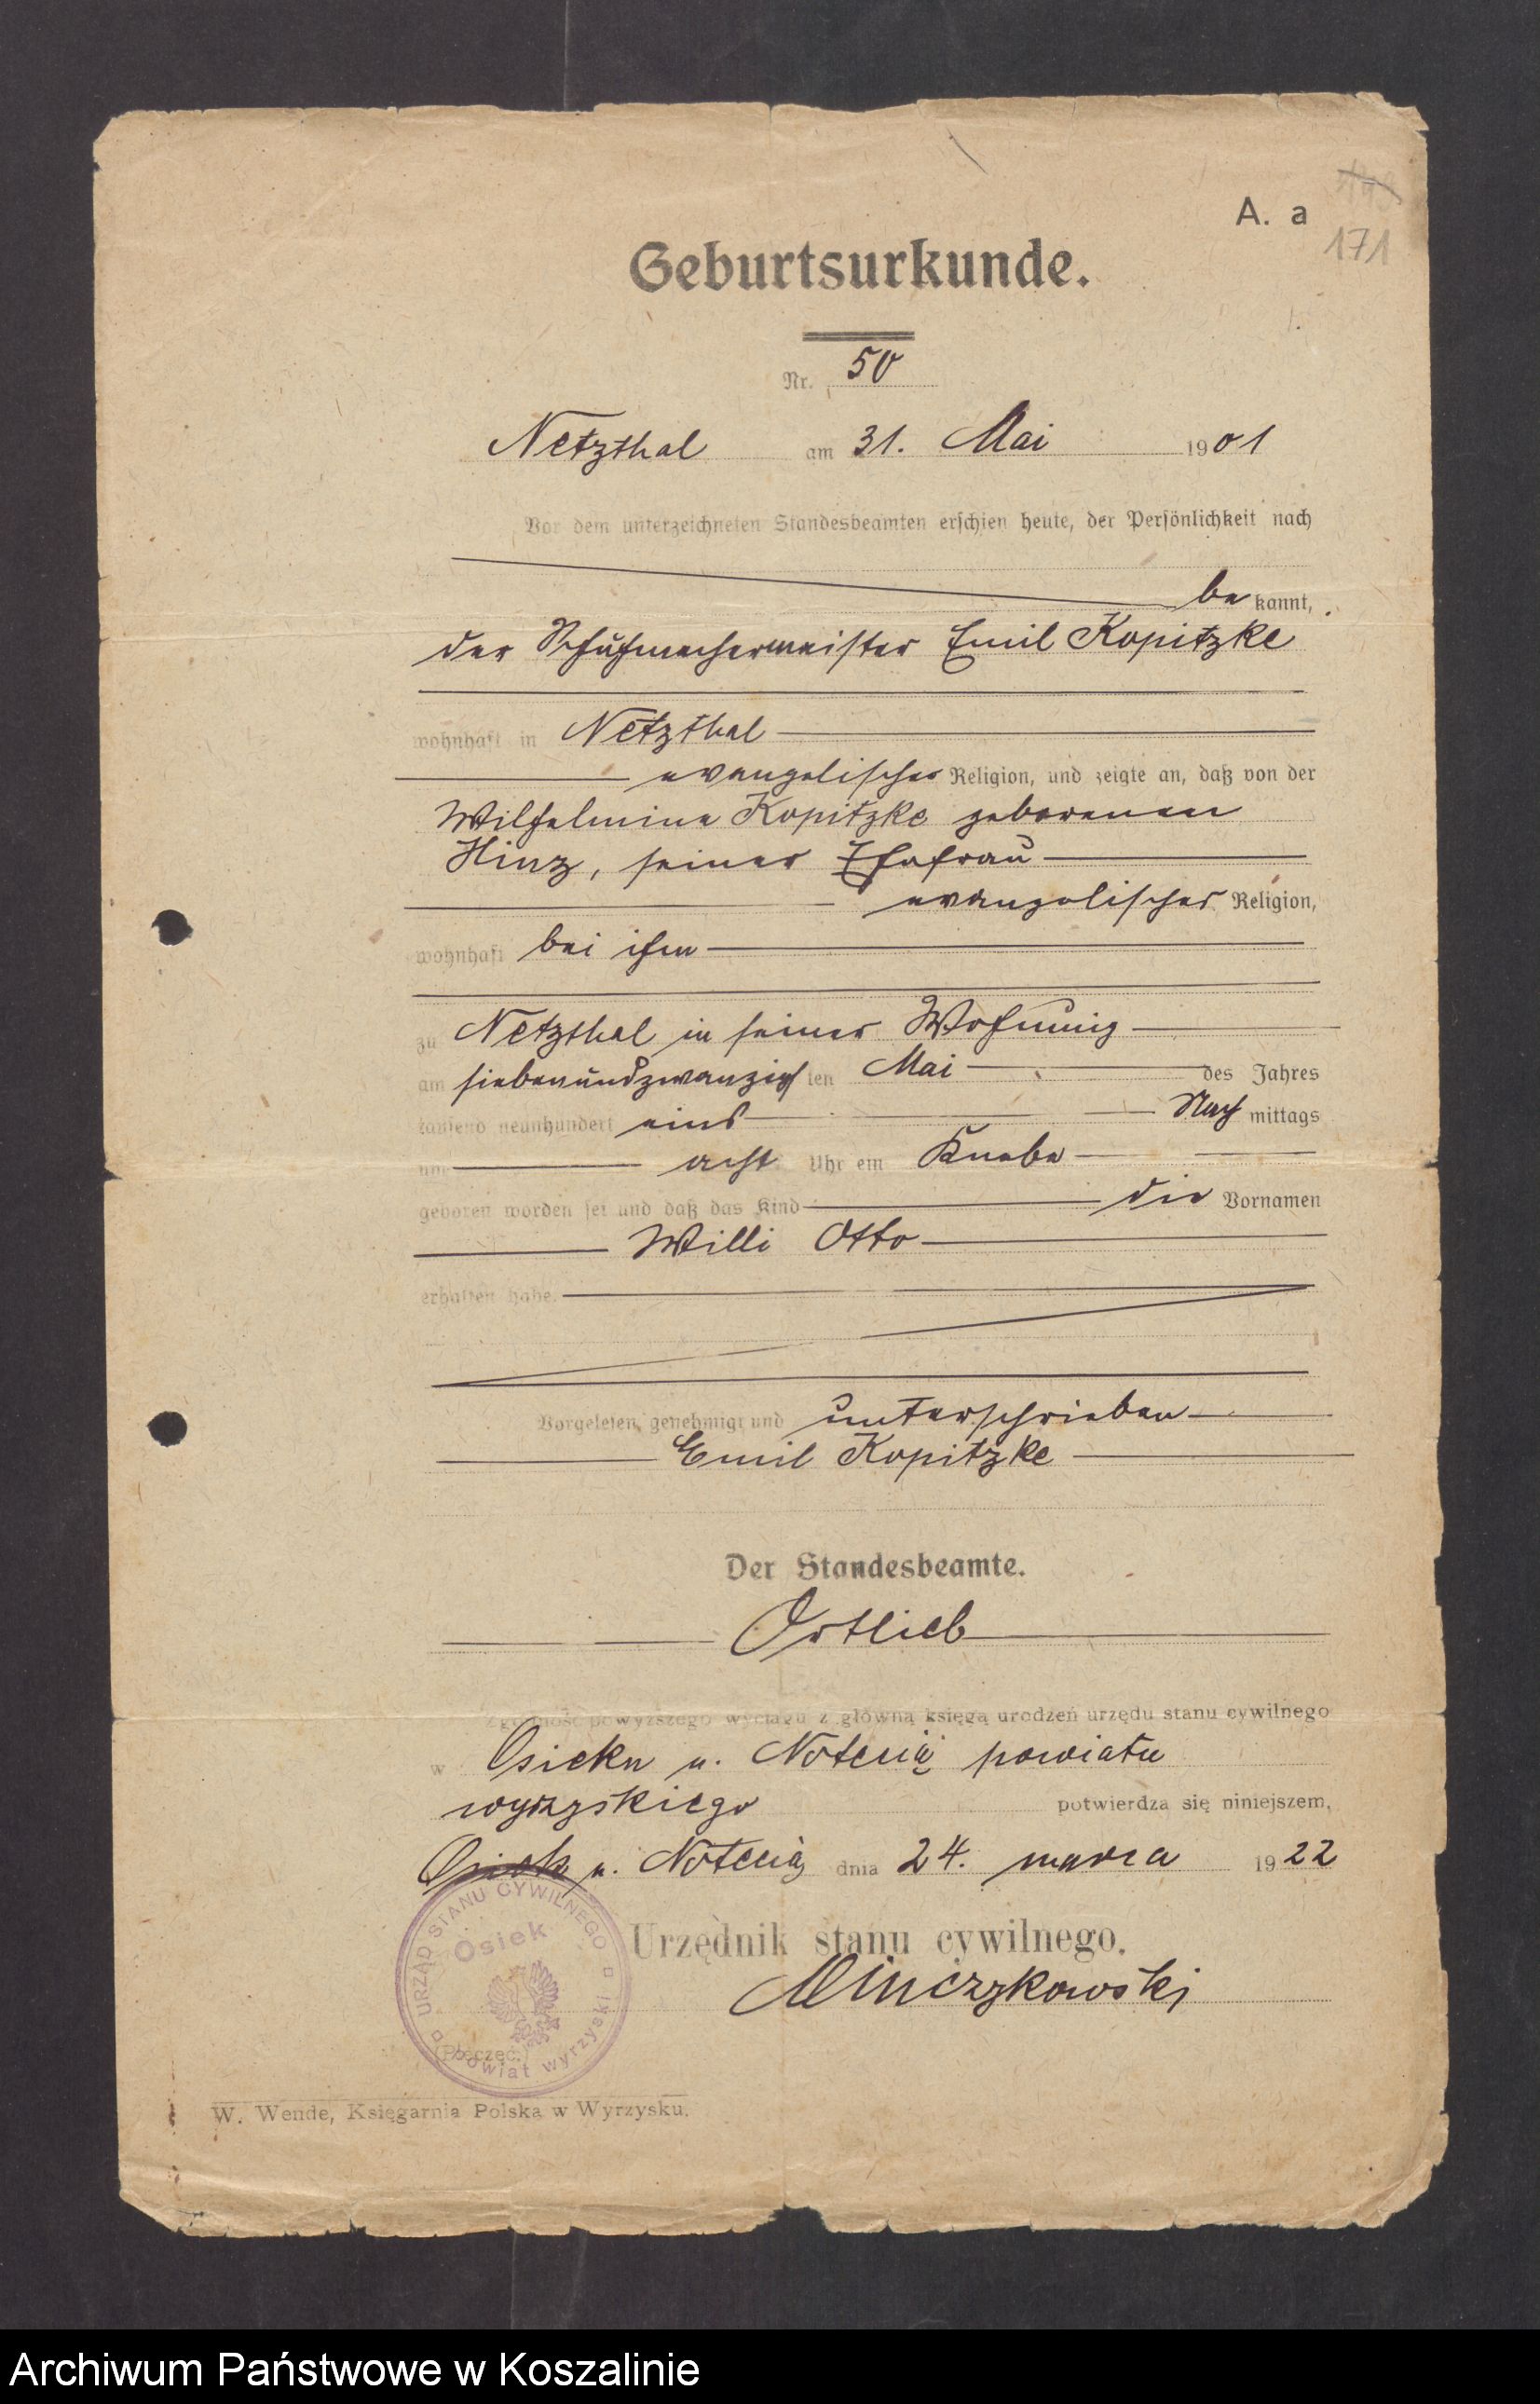 A. a
171
Geburtsurkunde.
Nr. 50
Netzthal am 31. Mai 1901
Vor dem unterzeichneten Standesbeamten erschien heute, der Persönlichkeit nach
bekannt,
der Schuhmachermeister Emil Kopitzke
wohnhaft in Netzthal
evangelischer Religion, und zeigte an, daß von der
Wilhelmine Kopitzke geborenen
Hinz, seiner Ehefrau
evangelischer Religion,
wohnhaft bei ihm
zu Netzthal in seiner Wohnung
am siebenundzwanzigsten Mai des Jahres
tausend neunhundert eins Nachmittags
um acht Uhr ein Knabe
geboren worden sei und daß das Kind die Vornamen
Willi Otto
erhalten habe.
Vorgelesen, genehmigt und unterschrieben
Emil Kopitzke
Der Standesbeamte.
Ortlieb
Zgodność powyższego wyciągu z główną księgą urodzeń urzędu stanu cywilnego
w Osieku n. Notecią powiatu
wyrzyskiego potwierdza się niniejszem,
Osiek n. Notecią dnia 24. marca 1922
Urzędnik stanu cywilnego.
Minczykowski
URZĄD STANU CYWILNEGO
Osiek
powiat wyrzyski
(Pieczęć.)
W. Wende, Księgarnia Polska w Wyrzysku.
Archiwum Państwowe w Koszalinie